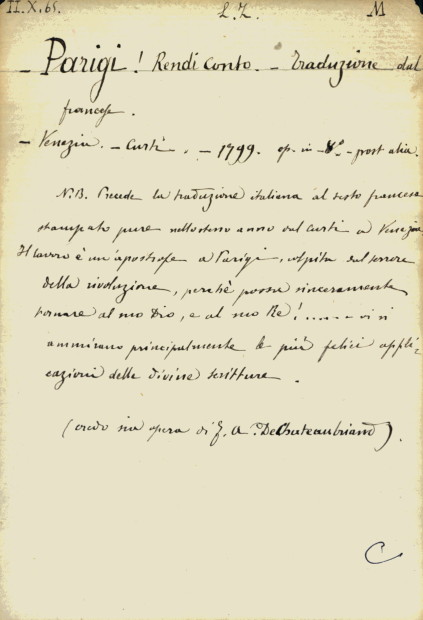 II.X.65. L.Z. M
– Parigi! Rendi Conto. – Traduzione dal
francese.
– Venezia. – Curti. – 1799. op. in – 8º – post alia.
N.B. Precede la traduzione italiana al testo francese
stampato pure nello stesso anno dal Curti a Venezia
Il lavoro è un'apostrofe a Parigi, colpita dal terrore
della rivoluzione, perchè possa sinceramente
tornare al suo Dio, e al suo Re! ....... – vi si
ammirano principalmente le più felici appli=
cazioni delle divine scritture.
(credo sia opera di F. A. DeChateaubriand).
C